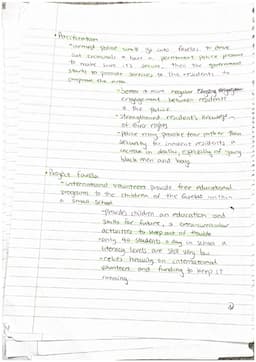 • Pacification
- armed police units go into favelas to drive
out criminals & have a permanent police presence
to make sure it's secure. Then the government
starts to provide services to the residents to
improve the area
- Seen a more regular
engagement between residents
& the police
- strengthened resident's knowledge
of their rights
- Police may provoke fear rather than
security for innocent residents &
increase in deaths, especially of young
black men and boys
• Project favela
- international volunteers provide free educational
programs to the children of the favelas within
a small school
- Provides children an education and
skills for future, & extracurricular
activities to keep out of trouble
- only 40 students a day in school &
literacy levels are still very low
- relies heavily on international
volunteers and funding to keep it
running